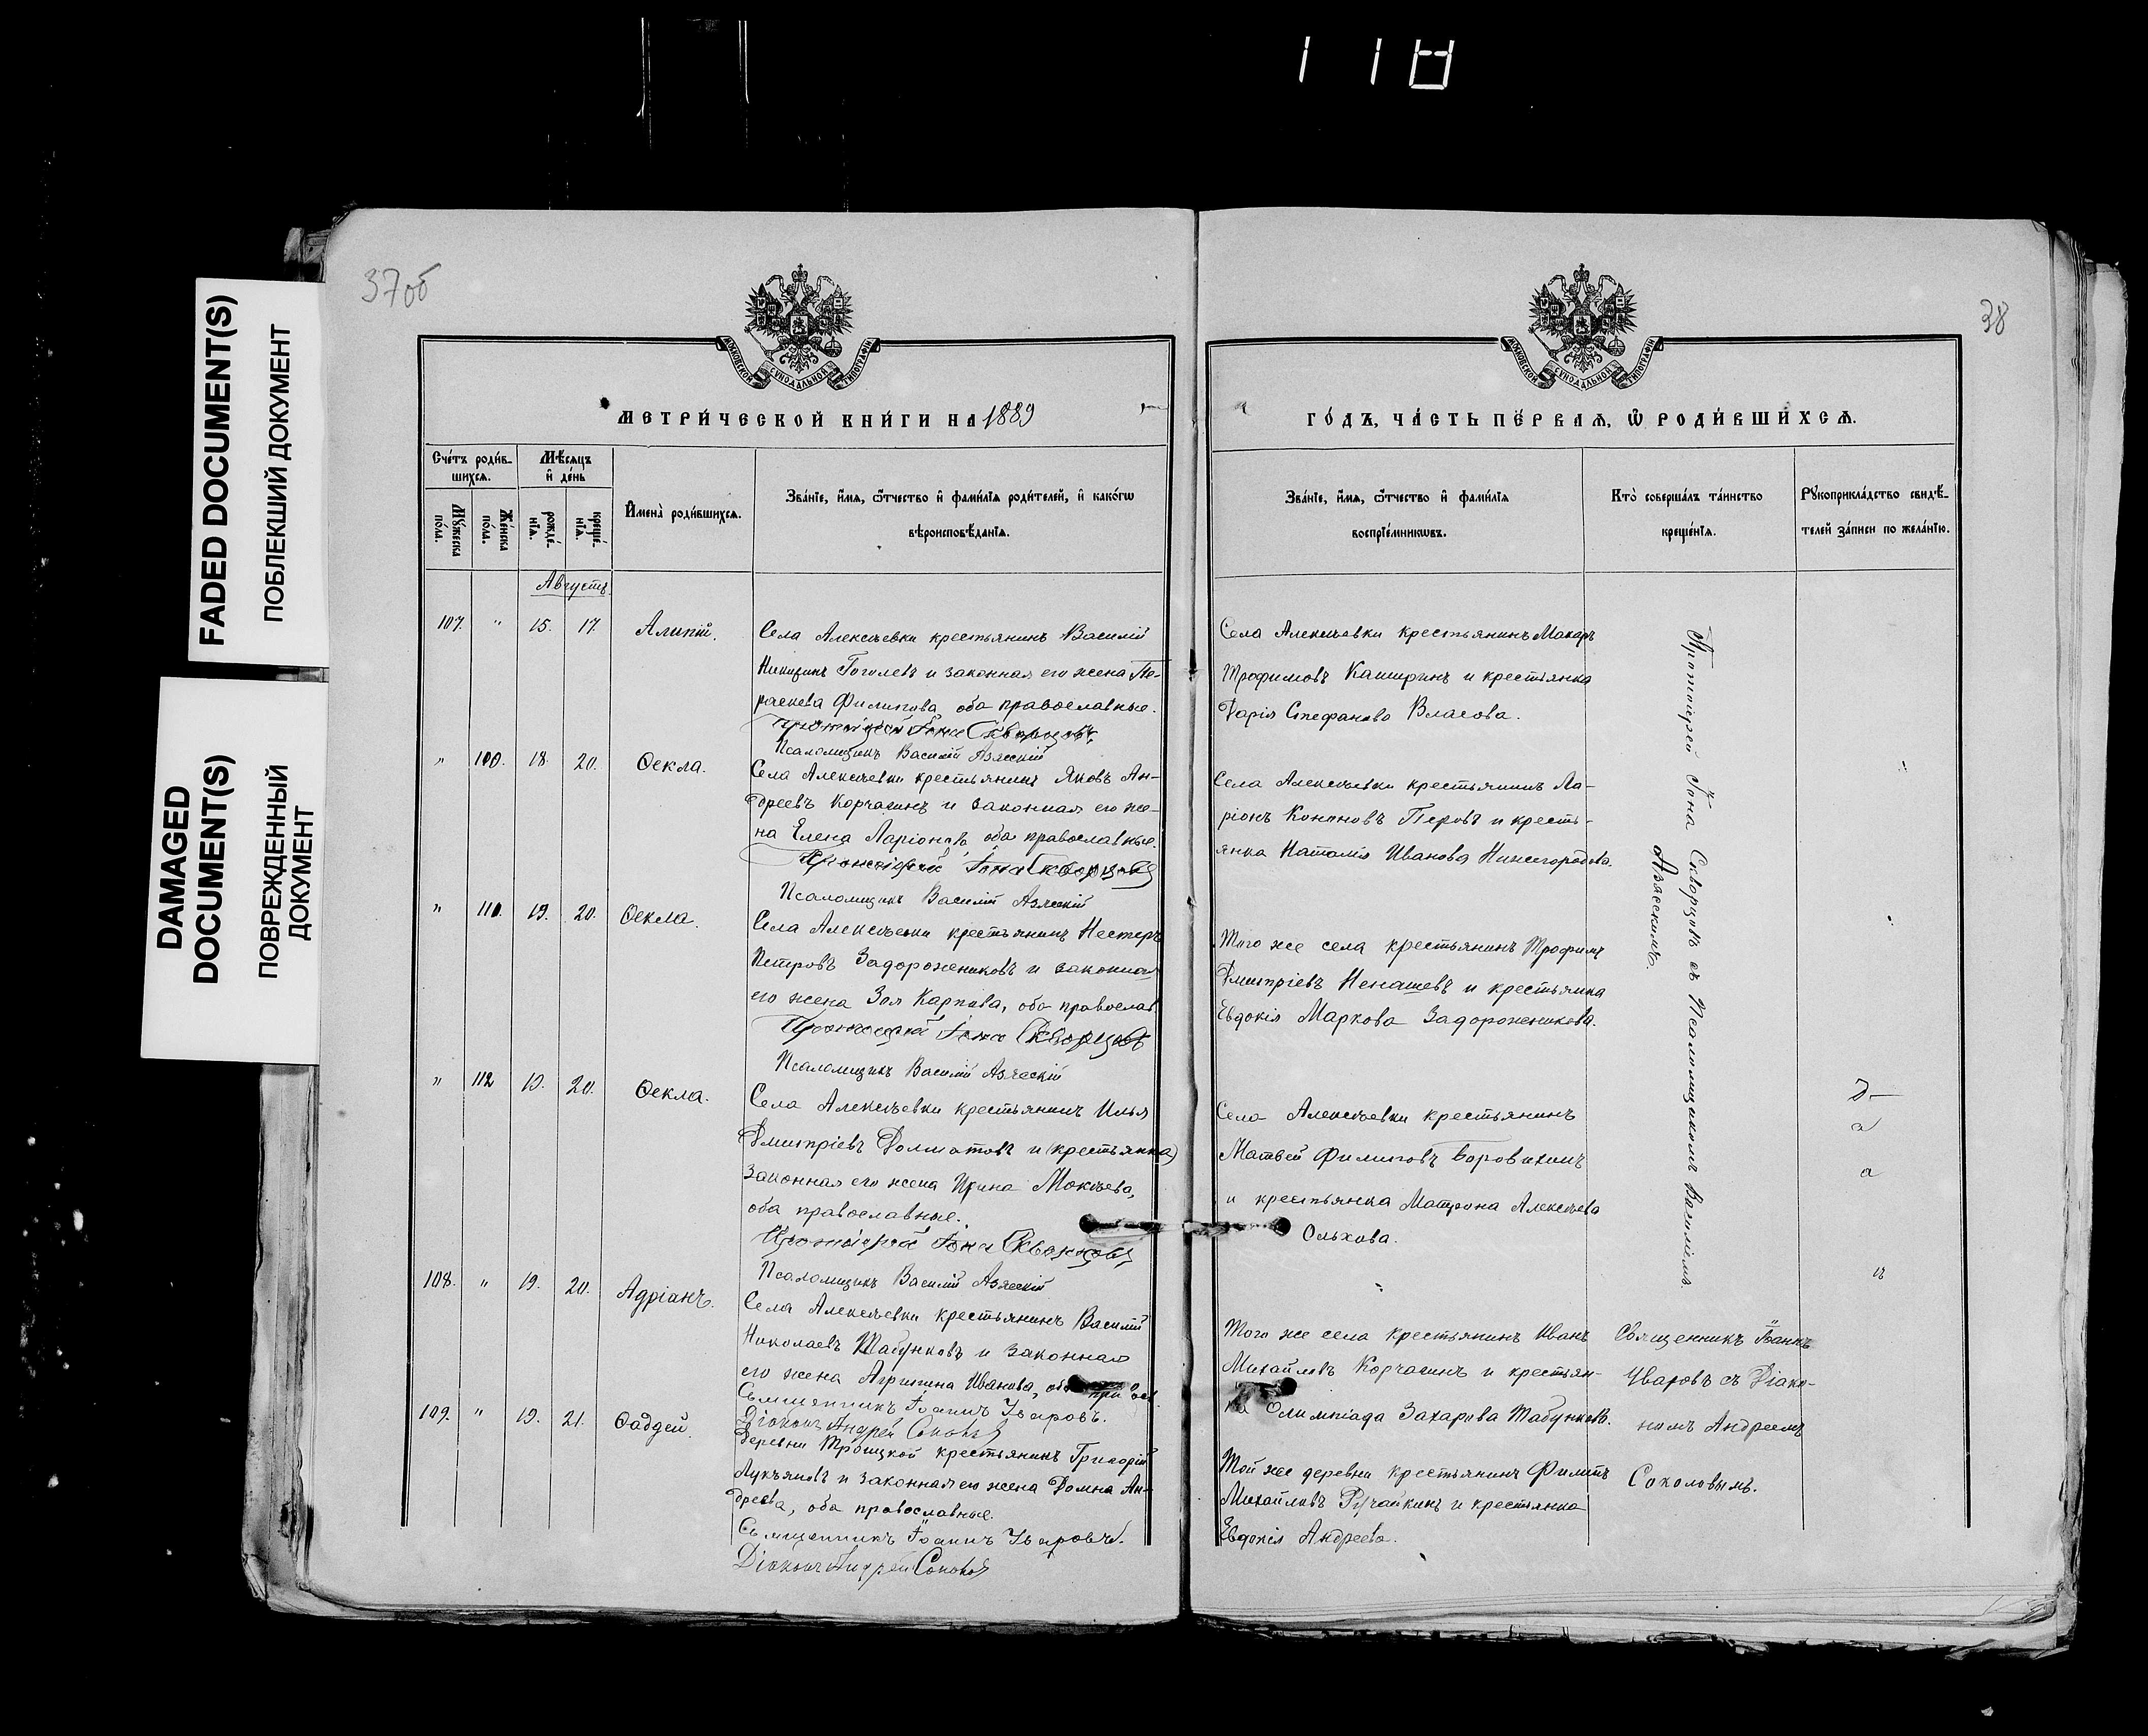 118
FADED DOCUMENT(S)
ПОБЛЕКШИЙ ДОКУМЕНТ
DAMAGED
DOCUMENT(S)
ПОВРЕЖДЕННЫЙ
ДОКУМЕНТ
37об
38
МОСКОВСКОЙ СѴНОДАЛЬНОЙ ТИПОГРАФІИ
МОСКОВСКОЙ СѴНОДАЛЬНОЙ ТИПОГРАФІИ
МЕТРИ́ЧЕСКОЙ КНИ́ГИ НА 1889
ГО́ДЪ, ЧА́СТЬ ПЕ́РВАѦ, Ѡ РОДИ́ВШИХСѦ.
Сче́тъ роди́в-
шихсѧ.
Мꙋ́жеска
по́ла.
Же́нска
по́ла.
Мѣ́сѧцъ
и де́нь
рожде́-
нїѧ.
креще́-
нїѧ.
И҆мена̀ роди́вшихсѧ.
Зва́нїе, и҆́мѧ, ѻ҆́тчество и҆ фами́лїѧ роди́телей, и҆ како́гѡ
вѣроисповѣ́данїѧ.
Зва́нїе, и҆́мѧ, ѻ҆́тчество и҆ фами́лїѧ
воспрїе́мникѡвъ.
Кто̀ соверша́лъ та́инство
креще́нїѧ.
Рꙋкоприкла́дство свидѣ́-
телей за́писи по жела́нїю.
Августъ
107. " 15. 17. Алипій.
Села Алексѣевки крестьянинъ Василій
Никитинъ Гоголевъ и законная его жена Па-
раскева Филипова оба православные.
Протоіерей Іона Скворцовъ,
Псаломщикъ Василій Азясскій
Села Алексѣевки крестьянинъ Макаръ
Трофимовъ Каширинъ и крестьянка
Дарія Стефанова Власова.
" 100. 18. 20. Ѳекла.
Села Алексѣевки крестьянинъ Яковъ Ан-
дреевъ Корчагинъ и законная его же-
на Елена Ларіонова, оба православные.
Протоіерей Іона Скворцовъ
Псаломщикъ Василій Азясскій
Села Алексѣевки крестьянинъ Ла-
ріонъ Кононовъ Перовъ и кресть-
янка Наталія Иванова Нижегородова.
" 110. 19. 20. Ѳекла.
Села Алексѣевки крестьянинъ Нестеръ
Петровъ Задорожниковъ и законная
его жена Зоя Карпова, оба православ.
Протоіерей Іона Скворцовъ
Псаломщикъ Василій Азясскій
Того же села крестьянинъ Трофимъ
Дмитріевъ Ненашевъ и крестьянка
Евдокія Маркова Задорожникова.
" 112 19. 20. Ѳекла.
Села Алексѣевки крестьянинъ Илья
Дмитріевъ Долматовъ и (крестьянка)
законная его жена Ирина Мокѣева,
оба православные.
Протоіерей Іона Скворцовъ
Псаломщикъ Василій Азясскій
Села Алексѣевки крестьянинъ
Матвей Филиповъ Боровихинъ
и крестьянка Матрона Алексѣева
Ольхова.
Протоіерей Іона Скворцовъ съ Псаломщикомъ Василіемъ
Азясскимъ.
108. " 19. 20. Адріанъ.
Села Алексѣевки крестьянинъ Василій
Николаевъ Табунковъ и законная
его жена Агрипина Иванова, оба прав
Священникъ Іоаннъ Уваровъ.
Діаконъ Андрей Соколовъ
Того же села крестьянинъ Иванъ
Михайловъ Корчагинъ и крестьян-
ка Олимпіада Захарова Табункова.
109. " 19. 21. Ѳаддей.
Деревни Троицкой крестьянинъ Григорій
Лукъяновъ и законная его жена Домна Ан-
дреева, оба православные.
Священникъ Іоаннъ Уваровъ.
Діаконъ Андрей Соколовъ
Той же деревни крестьянинъ Филипъ
Михайловъ Ручайкинъ и крестьянка
Евдокія Андреева.
Священникъ Іоаннъ
Уваровъ съ Діако-
номъ Андреемъ
Соколовымъ.